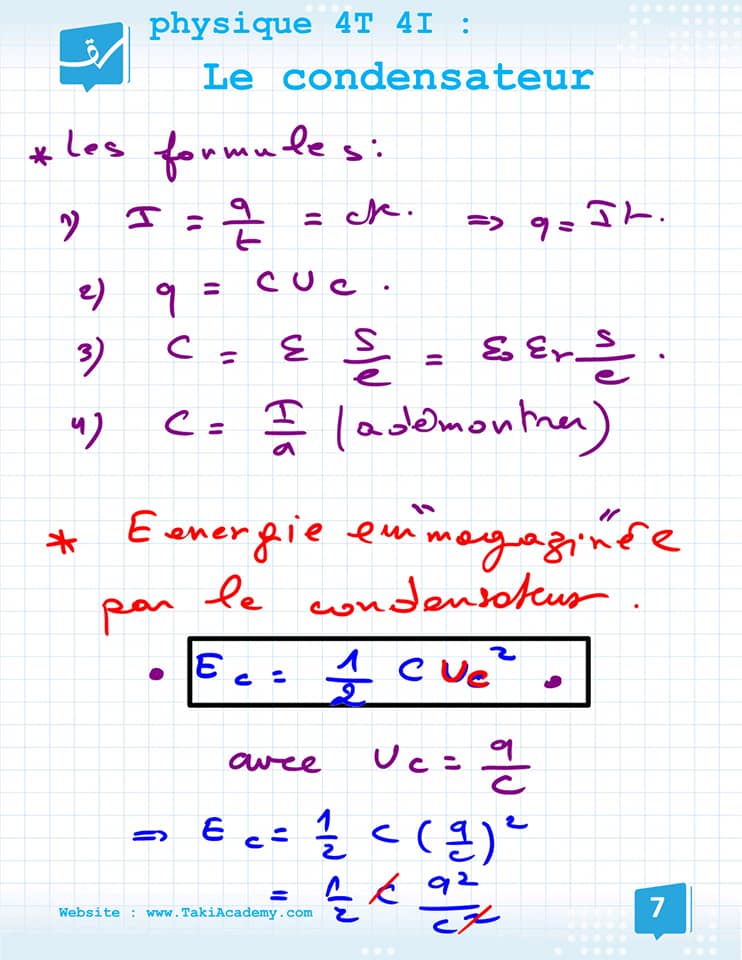 physique 4T 4I :
Le condensateur
* Les formules :
1) I = q/t = cte. => q = It.
2) q = C Uc.
3) C = ε S/e = ε₀ εr S/e.
4) C = I/a (a démontrer)
* E energie em"magazinée"
par le condensateur.
• Ec = 1/2 C Uc² •
avec Uc = q/C
=> Ec = 1/2 C (q/c)²
= 1/2 C q²/C²
Website : www.TakiAcademy.com
7